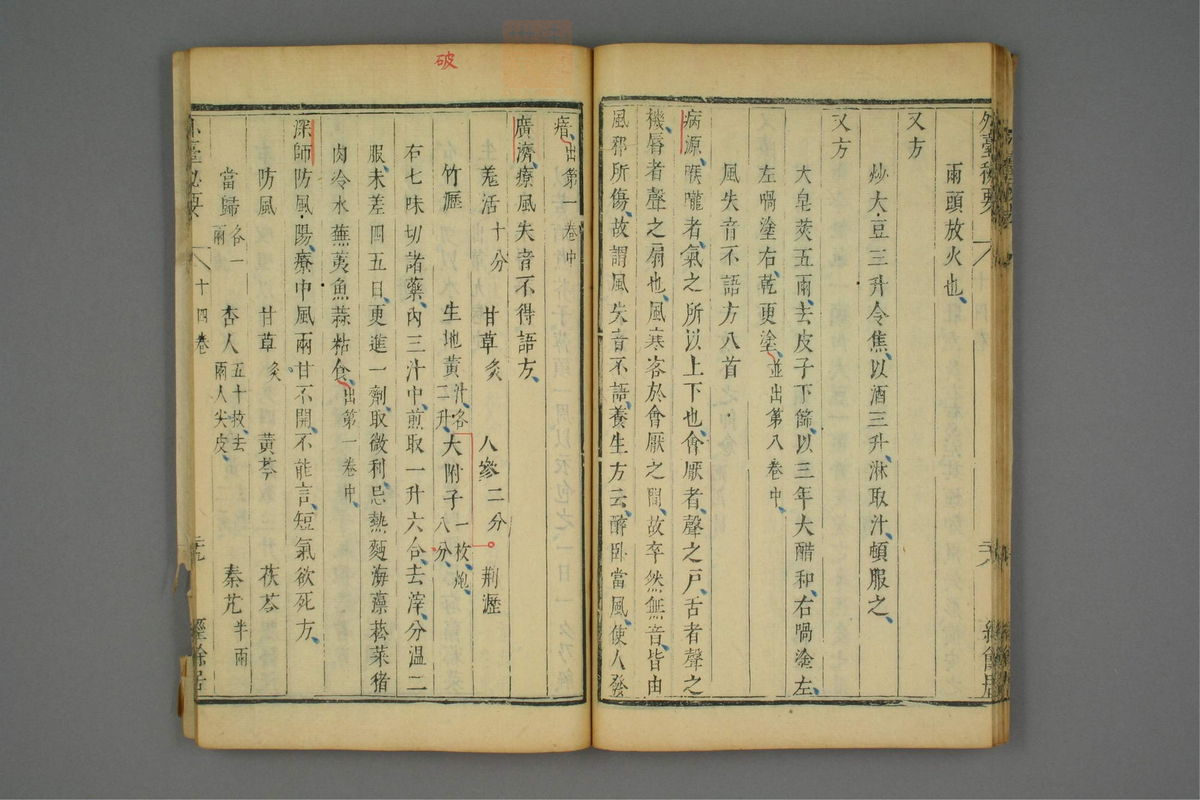 外臺秘要
兩頭放火也
又方
炒大豆三升令焦以酒三升淋取汁頓服之
又方
大皂莢五兩去皮子下篩以三年大醋和右喎塗左
左喎塗右乾更塗並出第八卷中
風失音不語方八首
病源喉嚨者氣之所以上下也會厭者聲之戶舌者聲之
機唇者聲之扇也風寒客於會厭之間故卒然無音皆由
風邪所傷故謂風失音不語養生方云醉卧當風使人發
瘖出第一卷中
廣濟療風失音不得語方
羗活十分 甘草炙 人參二分 荆瀝
竹瀝 生地黃汁各二升 大附子一枚炮八分
右七味切諸藥內三汁中煎取一升六合去滓分溫二
服未差四五日更進一劑取微利忌熱麵海藻菘菜猪
肉冷水蕪荑魚蒜粘食出第一卷中
深師防風湯療中風兩甘不開不能言短氣欲死方
防風 甘草炙 黃芩 茯苓
當歸各一兩 杏人五十枚去兩人尖皮 秦艽半兩
外臺秘要 十四卷 二十九 經餘居
破